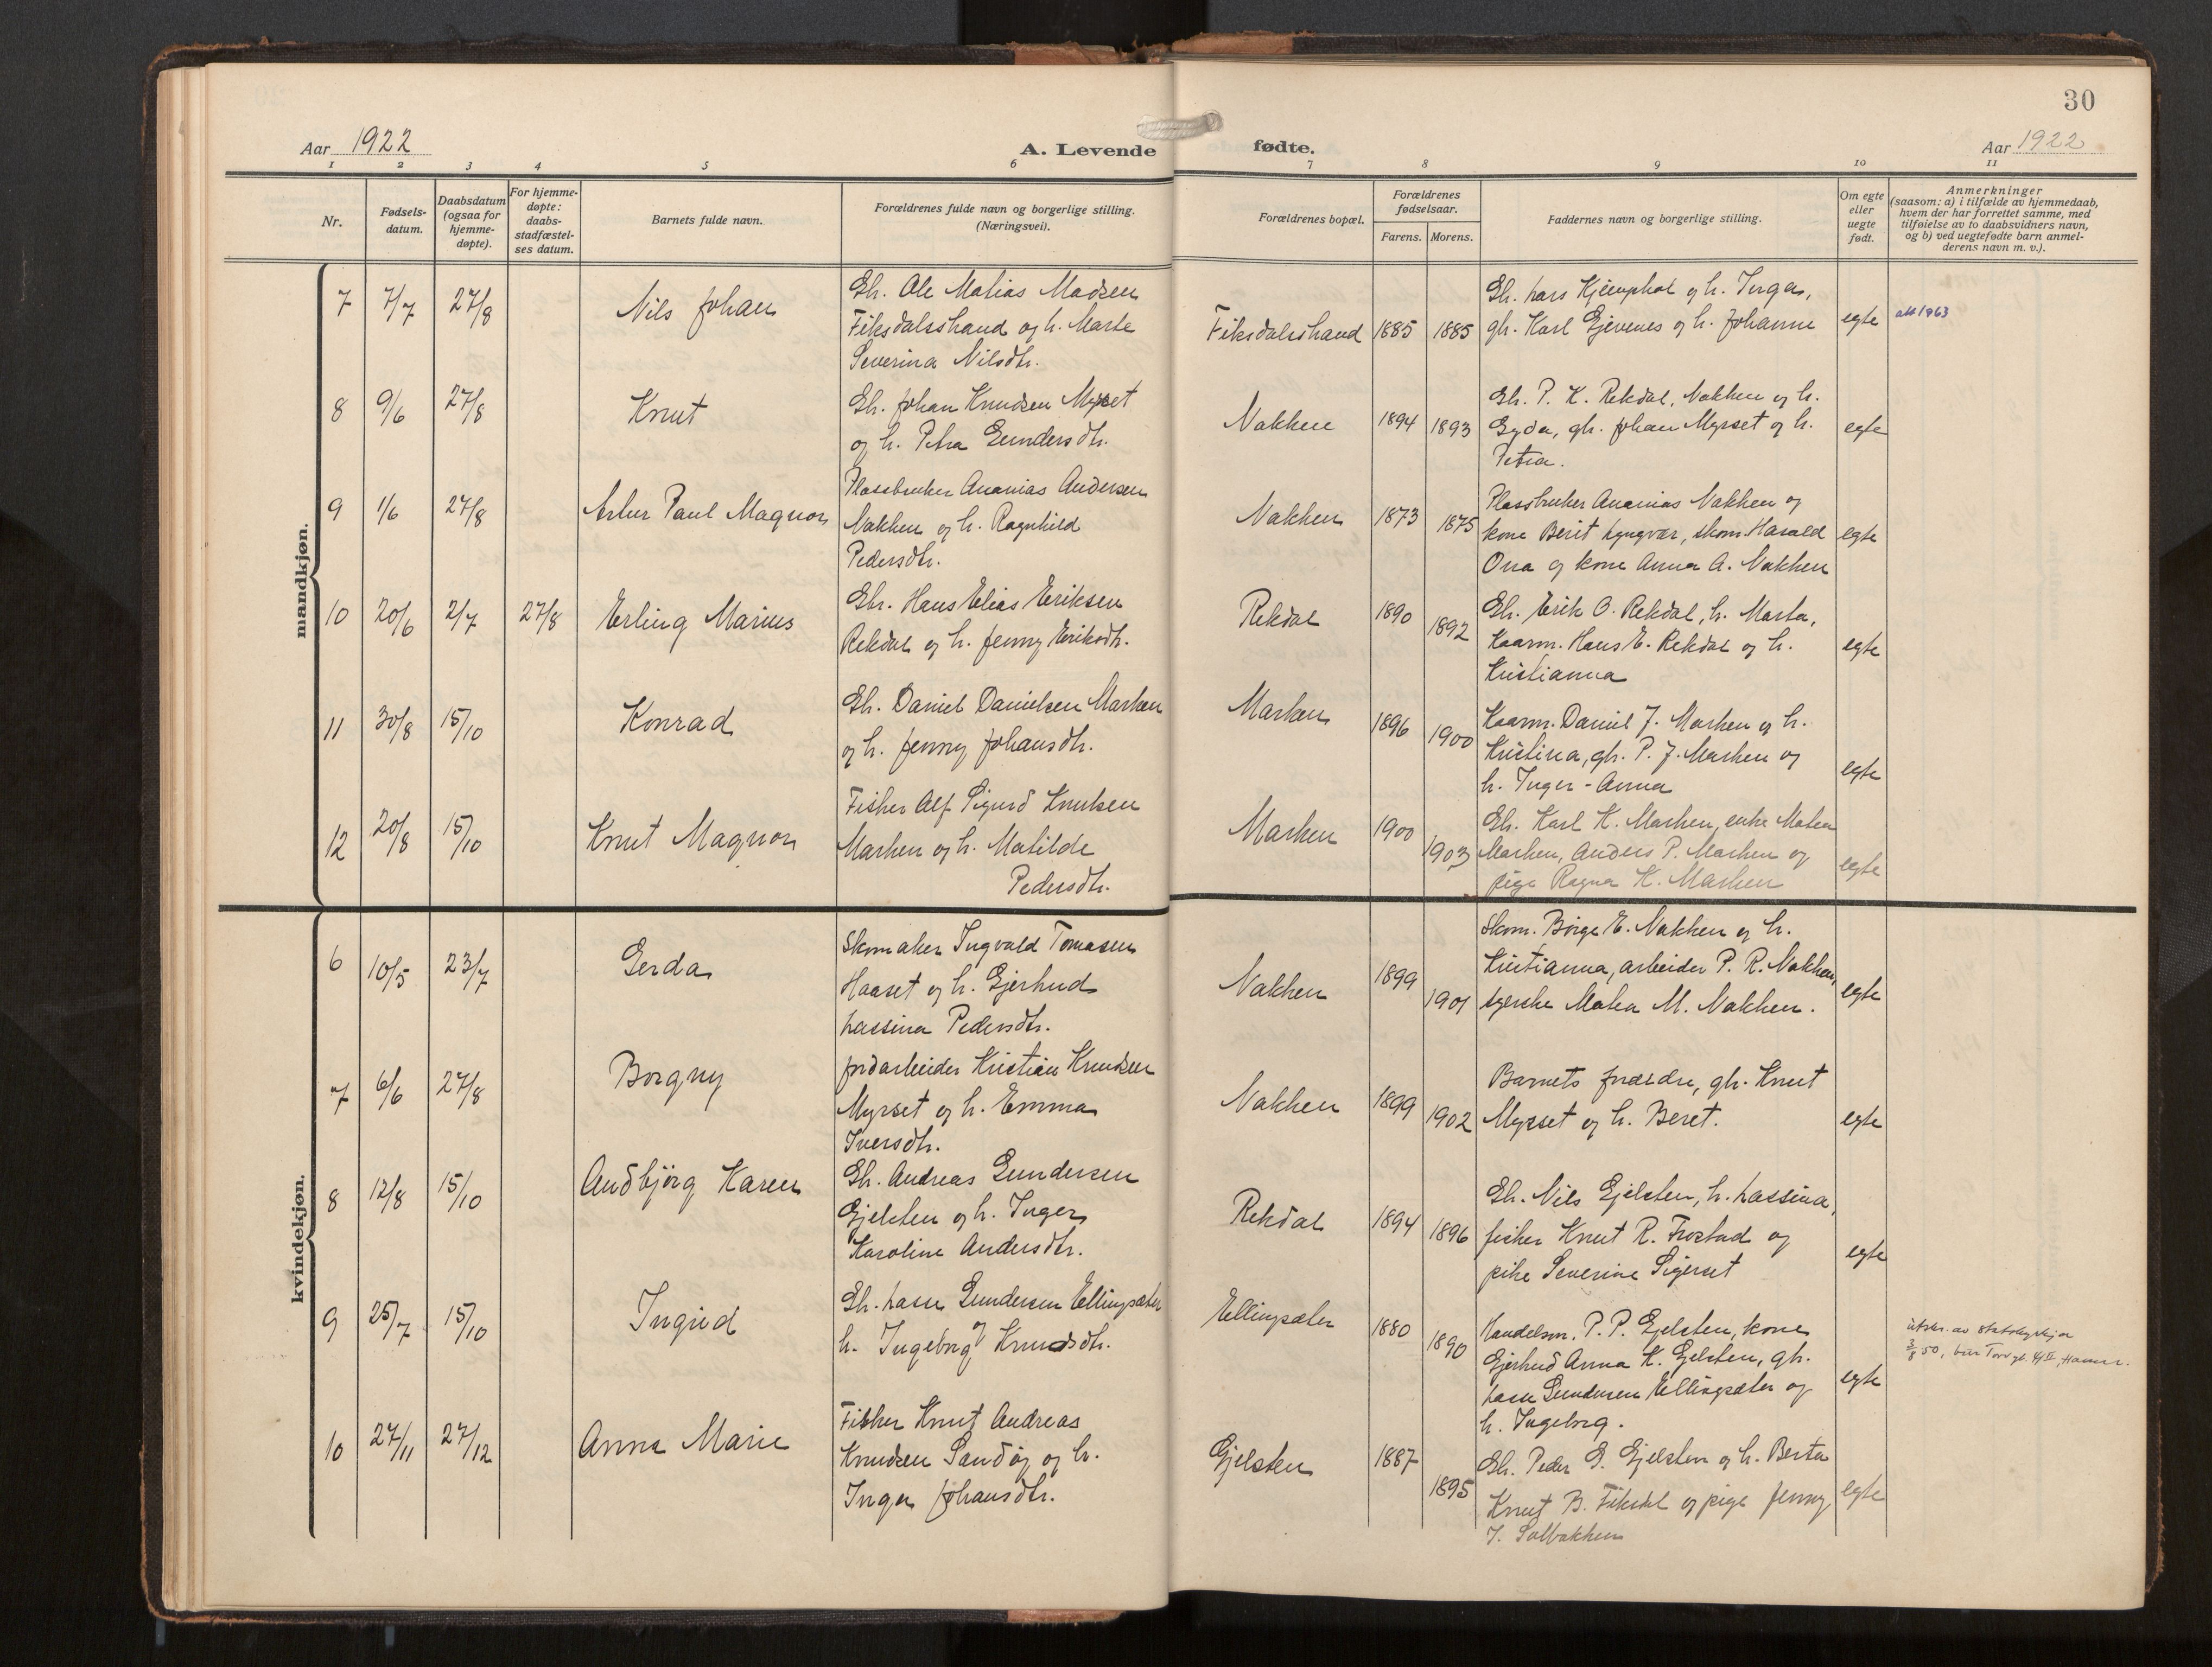 30
Aar 1922
A. Levende
fødte.
Aar 1922
1 2 3 4 5 6 7 8 9 10 11
Nr.
Fødsels-
datum.
Daabsdatum
(ogsaa for
hjemme-
døpte).
For hjemme-
døpte:
daabs-
stadfæstel-
ses datum.
Barnets fulde navn.
Forældrenes fulde navn og borgerlige stilling.
(Næringsvei).
Forældrenes bopæl.
Forældrenes
fødselsaar.
Farens. Morens.
Faddernes navn og borgerlige stilling.
Om egte
eller
uegte
født.
Anmerkninger
(saasom: a) i tilfælde av hjemmedaab,
hvem der har forrettet samme, med
tilføielse av to daabsvidners navn,
og b) ved uegtefødte barn anmel-
derens navn m. v.).
mandkjøn.
7 7/7 27/8 Nils Johan
Gbr. Ole Matias Madsen
Fiksdalsstrand og h. Marte
Severina Nilsdtr.
Fiksdalsstrand 1885 1885
Gbr. Lars og h. Inga,
gbr. Karl Gjevenes og h. Johanne
egte att 1963
8 9/6 27/8 Knut
Gbr. Johan Knudsen Myrset
og h. Petra Gundersdtr.
Nakken 1894 1893
Gbr. P. K. Rekdal, Nakken og h.
Gyda, gbr. Johan Myrset og h.
Petra.
egte
9 1/6 27/8 Artur Paul Magnor
Plassbruker Ananias Andersen
Nakken og h. Ragnhild
Pedersdtr.
Nakken 1873 1875
Plassbruker Ananias Nakken og
kone Berit Lyngvær, skom. Harald
Ona og kone Anna A. Nakken
egte
10 20/6 2/7 27/8 Erling Marius
Gbr. Hans Elias Eriksen
Rekdal og h. Jenny Eriksdtr.
Rekdal 1890 1892
Gbr. Erik O. Rekdal, h. Marta,
Kaarm. Hans E. Rekdal og h.
Kristianna
egte
11 30/8 15/10 Konrad
Gbr. Daniel Danielsen Marken
og h. Jenny Johansdtr.
Marken 1896 1900
Kaarm. Daniel J. Marken og h.
Kristina, gbr. P. J. Marken og
h. Inger-Anna
egte
12 20/8 15/10 Knut Magnor
Fisker Alf Sigurd Knutsen
Marken og h. Matilde
Pedersdtr.
Marken 1900 1903
Gbr. Karl K. Marken, enke Matea
Marken, Anders P. Marken og
pige Ragna K. Marken
egte
kvindekjøn.
6 10/5 23/7 Gerda
Skomaker Ingvald Tomasen
Haaset og h. Gjertrud
Lassina Pedersdtr.
Nakken 1899 1901
Skom. Børge E. Nakken og h.
Kristianna, arbeider P. R. Nakken,
syerske Matea M. Nakken.
egte
7 6/6 27/8 Borgny
Jordarbeider Kristian Knudsen
Myrset og h. Emma
Iversdtr.
Nakken 1899 1902
Barnets forældre, gbr. Knut
Myrset og h. Beret.
egte
8 12/8 15/10 Audbjörg Karen
Gbr. Andreas Gundersen
Gjelsten og h. Inger
Karoline Andersdtr.
Rekdal 1894 1896
Gbr. Nils Gjelsten, h. Lassina,
fisker Knut R. Frostad og
pike Severine Sigerset
egte
9 25/7 15/10 Ingrid
Gbr. Lasse Gundersen Ellingsæter
og
h. Ingeborg Knudsdtr.
Ellingsæter 1880 1890
Handelsm. P. P. Gjelsten, kone
Gjertrud Anna K. Gjelsten, gbr.
Lasse Gundersen Ellingsæter og
h. Ingeborg.
egte
utskr. av
3/8 50, bor Torvgt.
10 27/11 27/12 Anna Marie
Fisker Knut Andreas
Knudsen Sandöy og h.
Inga Johansdtr.
Gjelsten 1887 1895
Gbr. Peder G. Gjelsten og h. Berta
Knut B. Fiksdal og pige Jenny
J. Solbakken
egte